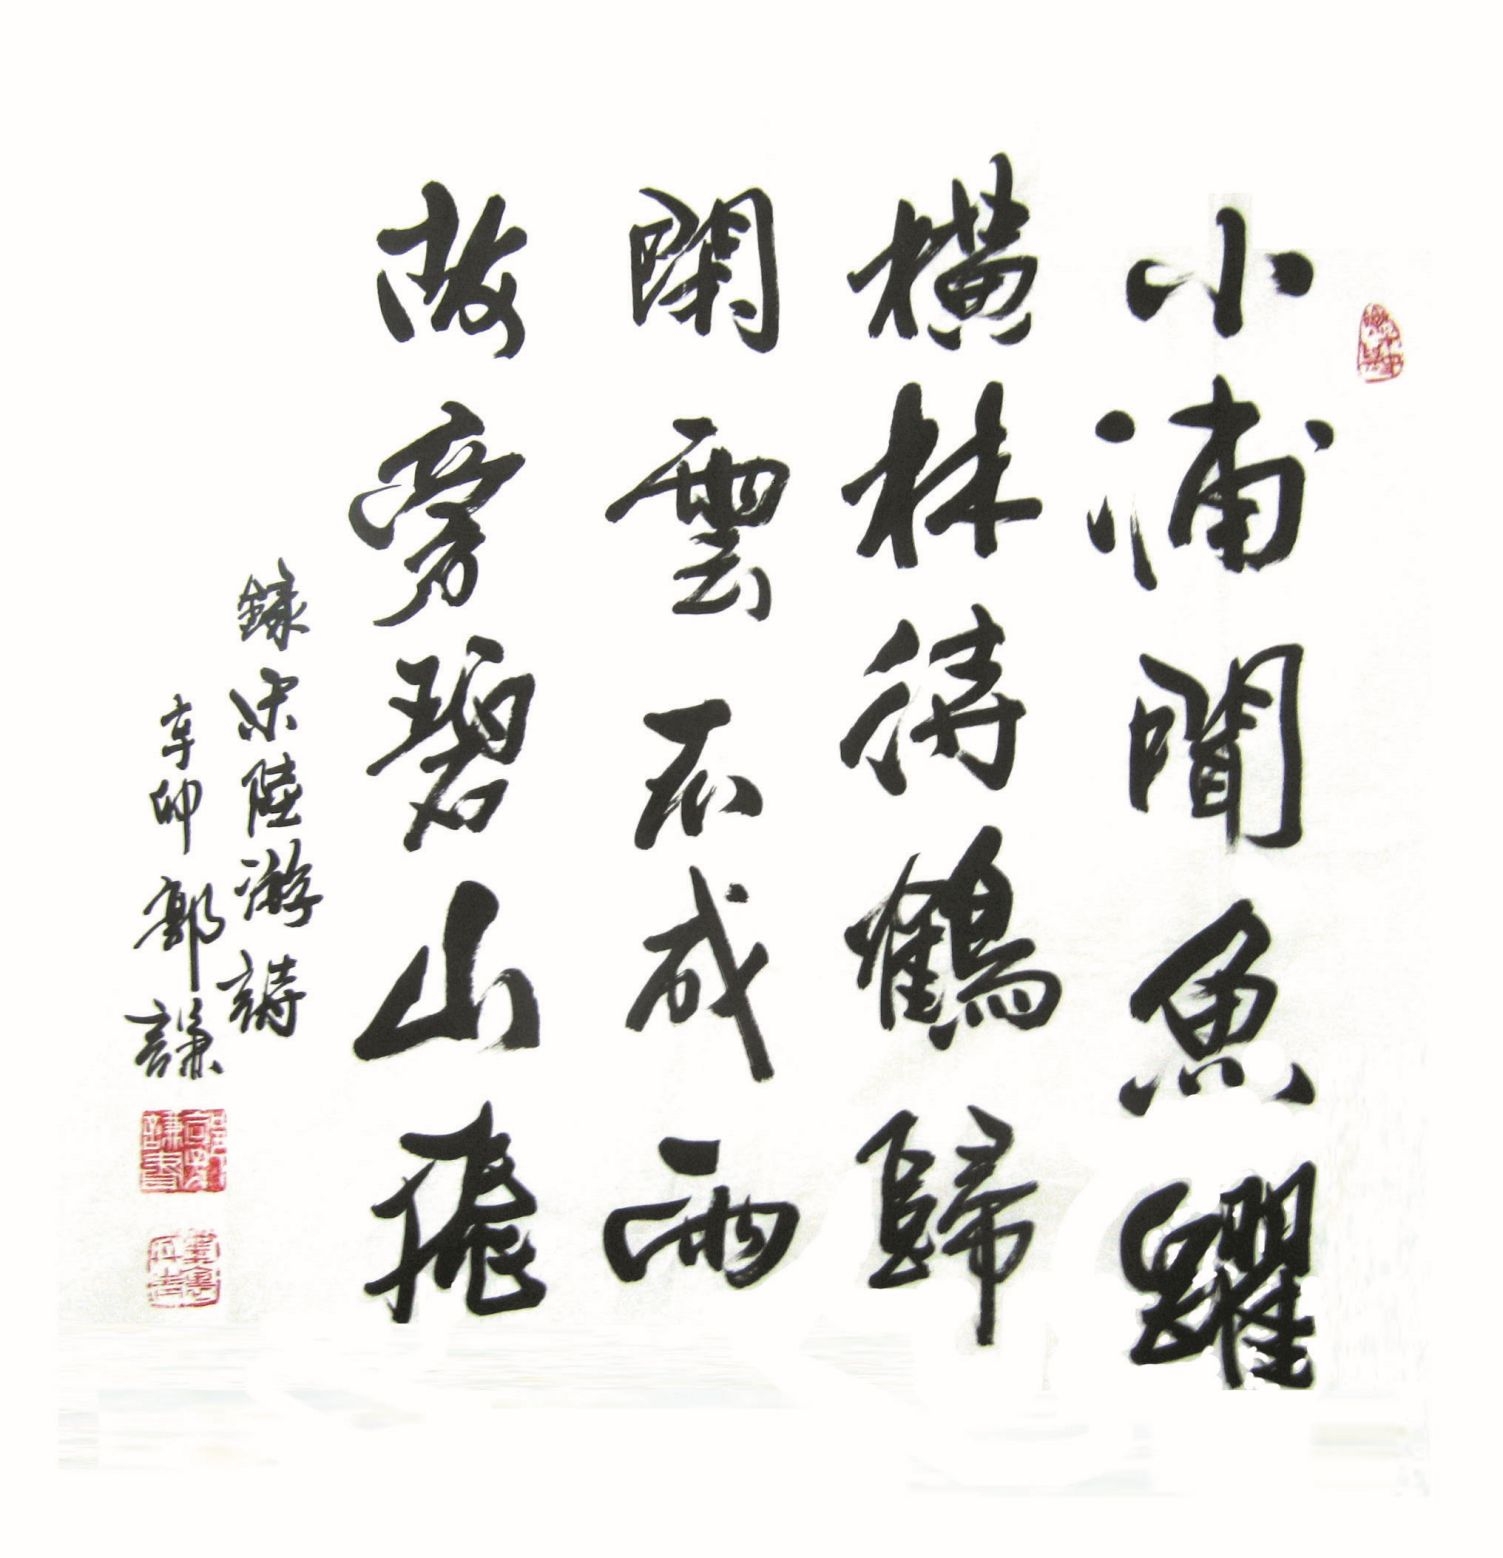 小浦聞魚躍
橫林待鶴歸
閑雲不成雨
故旁碧山飛
錄宋陸游詩
辛卯郭謙